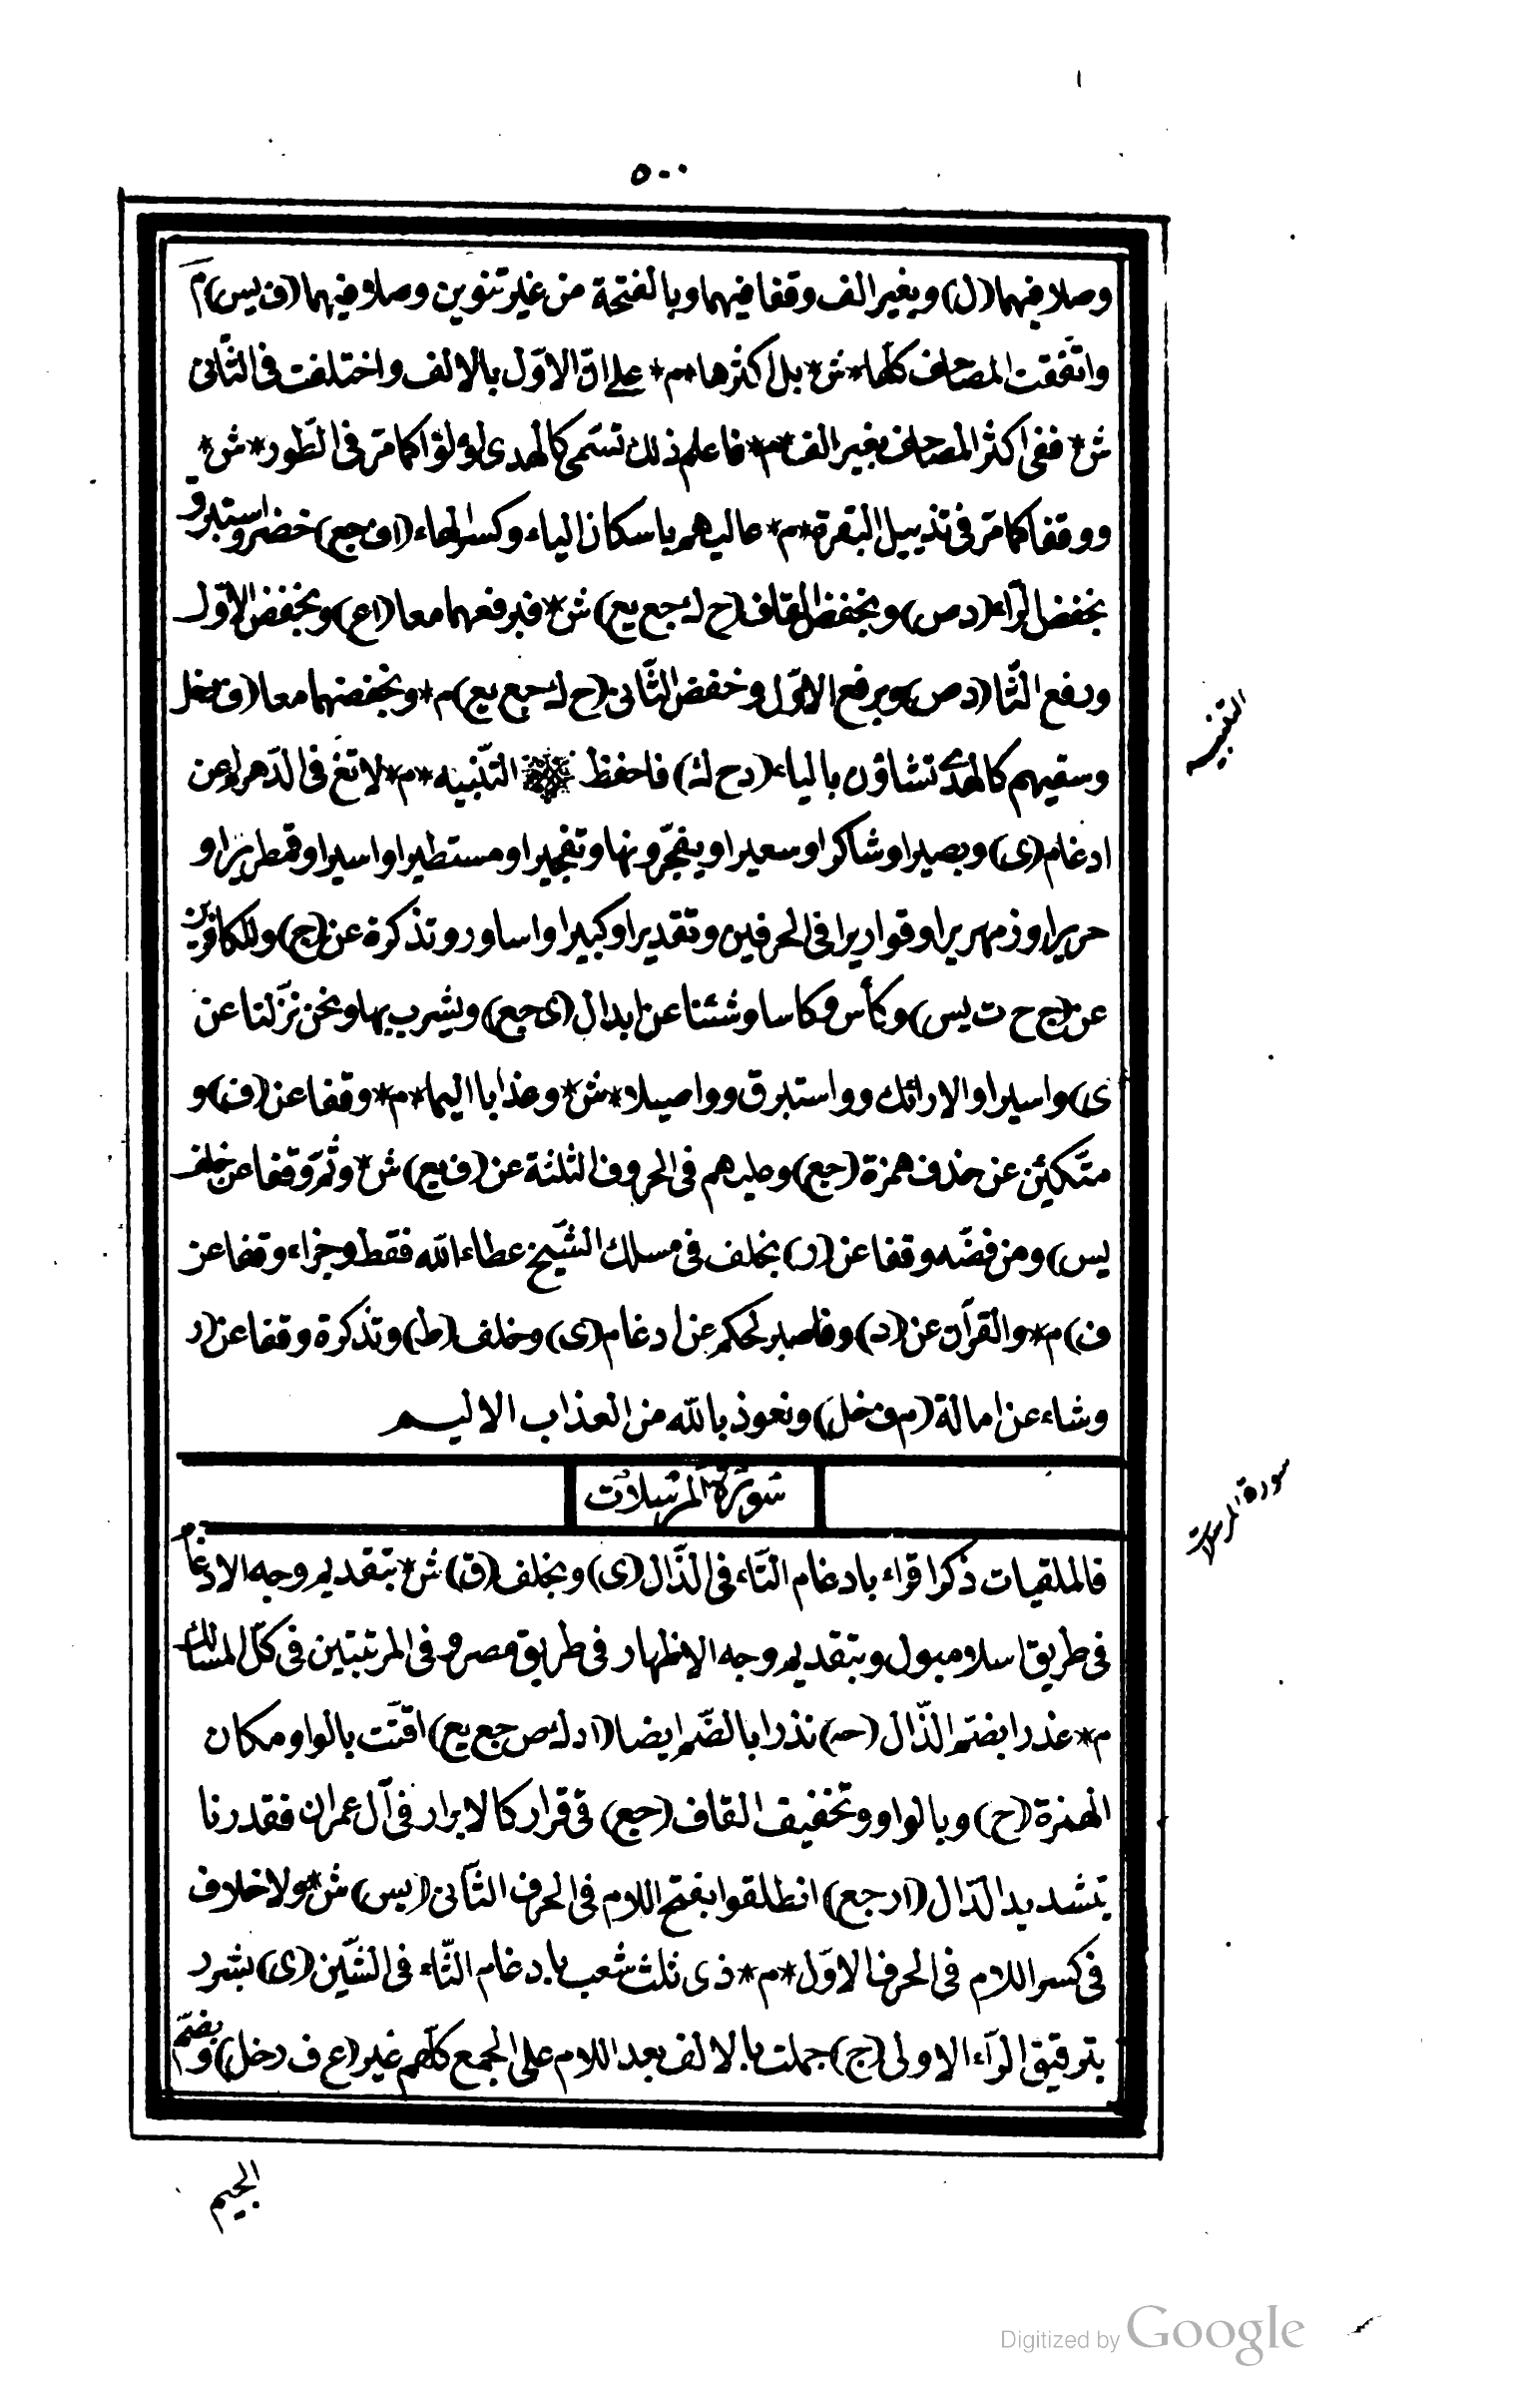 ٥٠٠
وصلا فيهما (ل) وبغير الف وقفا فيهما وبالفتحة من غير تنوين وصلا فيهما (ف يس) م
واتّفقت المصاحف كلّها * ش * بل اكثرها * م * على انّ الاوّل بالالف واختلفت فى الثّانى
ش * ففى اكثر المصاحف بغير الف * م * فاعلم ذلك تسمّى كالهدى لؤلؤا كما مرّ فى الطّور * ش *
ووقفا كما مرّ فى تذييل البقرة * م * عاليهم باسكان الياء وكسر الهاء (اف جع) خضر واستبرق
بخفض الرّاء (دص) وبخفض القاف (ح ك جع يع) ش * فبرفعهما معا (اع) وبخفض الاوّل
ورفع الثّا (دص) وبرفع الاوّل وخفض الثّانى (ح ك جع يع) م * وبخفضهما معا (ف
وسقيهم كالهدى تشاؤن بالياء (دح ك) فاحفظ التّنبيه * م * لا تغ فى الدّهر عن
ادغام (ى) وبصيرا وشاكرا وسعيرا ويفجّرونها وتفجيرا ومستطيرا واسيرا وقمطريرا و
حريرا وزمهريرا وقواريرا فى الحرفين وتقديرا وكبيرا واساور وتذكرة عن (ج) وللكافرين
عن (ج ح ت يس) وكأس وكاسا وشئنا عن ابدال (ى جع) ويشرب بها ونحن نزّلنا عن
ى) واسيرا والارائك وواستبرق وواصيلا * ش * وعذابا اليما * م * وقفا عن (ف) و
متّكئين عن حذف همزة (جع) وعليهم فى الحروف الثلثة عن (ف يع) ش * وثمّ وقفا عن خلف
يس) ومن فضّه وقفا عن (ر) بخلف فى مسلك الشّيخ عطاء الله فقط وجزاء وقفا عن
ف) م * والقرآن عن (د) وفاصبر لحكم عن ادغام (ى) وخلف (ط) وتذكرة وقفا عن (ر
وشاء عن امالة (م ف خل) ونعوذ بالله من العذاب الاليم
سورة المرسلات
فالملقيات ذكرا قراء بادغام التّاء فى الذّال (ى) وبخلف (ق) ش * بتقديم وجه الادغا
فى طريق اسلامبول وبتقديم وجه الاظهار فى طريق مصر وفى المرتبتين فى كلّ المسالك
م * عذرا بضمّ الذّال (حه) نذرا بالضّم ايضا (اد ك ص جع يع) اقتت بالواو مكان
الهمزة (ح) وبالواو وتخفيف القاف (جع) فى قرار كالابرار فى آل عمران فقدرنا
بتشديد الدّال (ار جع) انطلقوا بفتح اللام فى الحرف الثّانى (يس) ش * ولا خلاف
فى كسر اللام فى الحرف الاوّل * م * ذى ثلث شعب بادغام الثّاء فى الشّين (ى) بشرر
بترقيق الرّاء الاولى (ج) جملت بالالف بعد اللام على الجمع كلّهم غير (ع ف د خل) وبضمّ
الجيم
التنبيه
سورة المرسلات
Digitized by Google